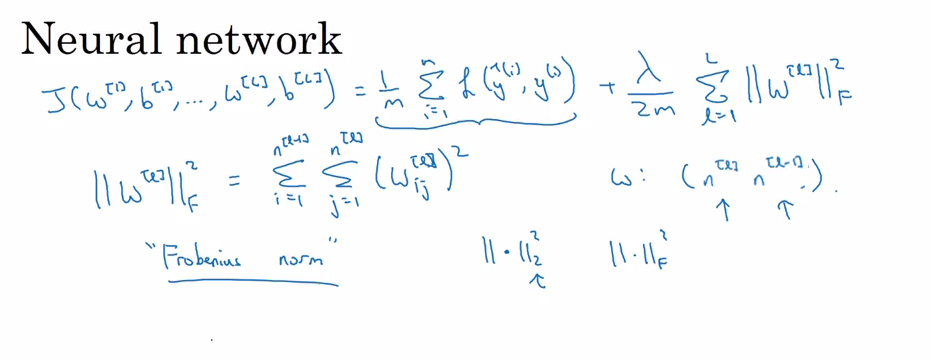 Neural network
J(w^[1], b^[1], ..., w^[L], b^[L]) = 1/m ∑_{i=1}^{n} L(ŷ^(i), y^(i)) + λ/2m ∑_{l=1}^{L} ||w^[l]||_F^2
||w^[l]||_F^2 = ∑_{i=1}^{n^[l-1]} ∑_{j=1}^{n^[l]} (w_ij^[l])^2 w: (n^[l] n^[l-1]).
"Frobenius norm" ||·||_2^2 ||·||_F^2